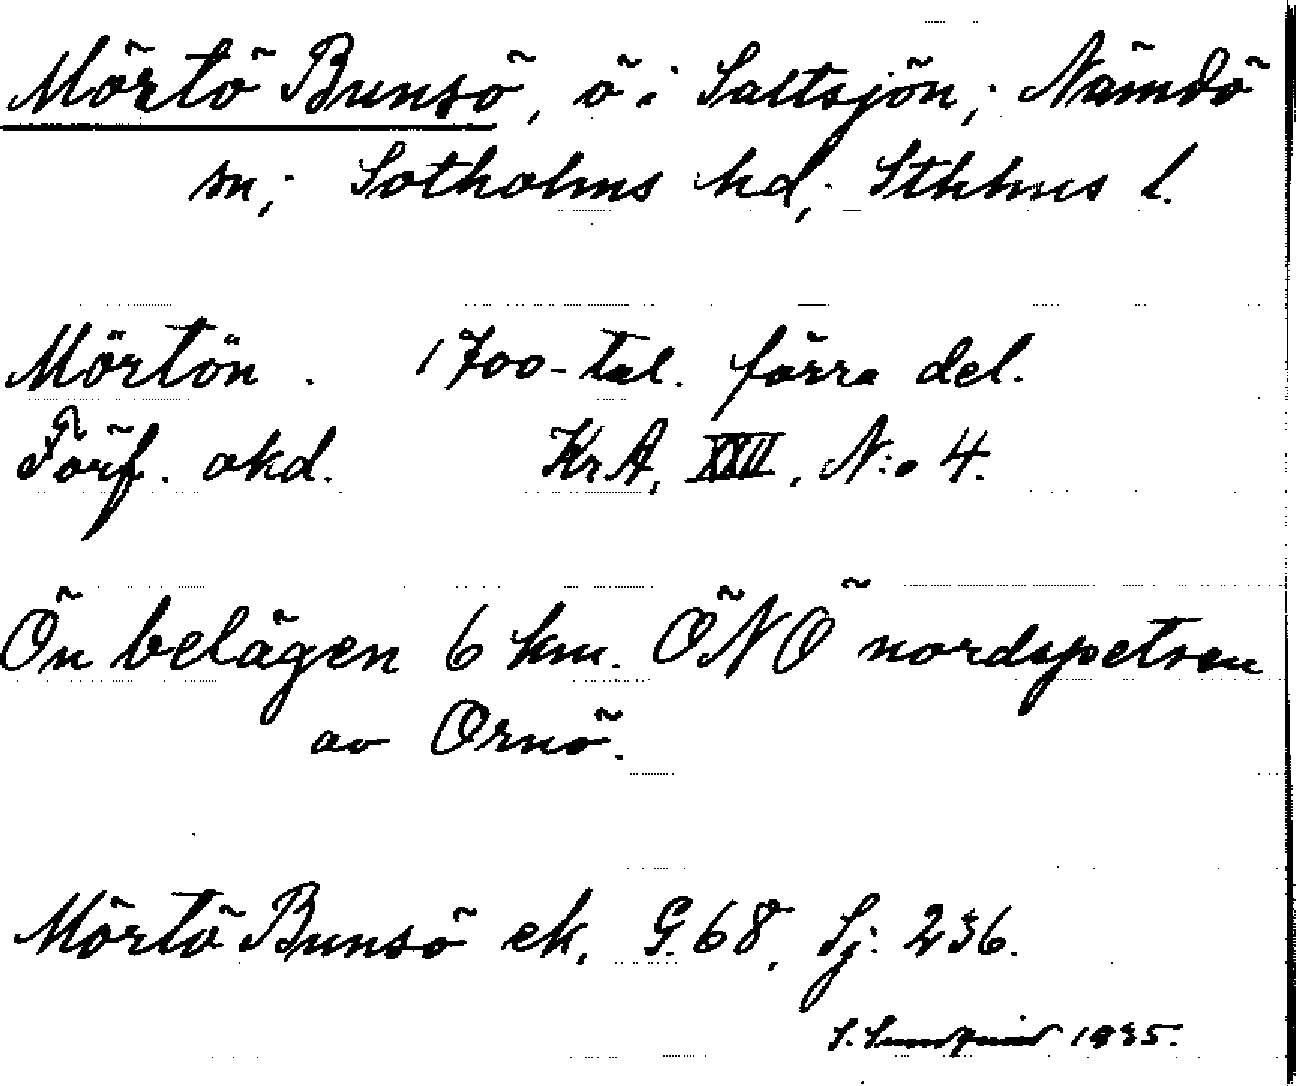 Mörtö Bunsö, ö i Saltsjön; Nämdö
sn; Sotholms hd; Sthlms l.
Mörtön. 1700-tal. förra del.
Förf. okd. KrA, XXII, N:o 4.
Ön belägen 6 km. ÖNÖ nordspetsen
av Ornö.
Mörtö Bunsö ek. G. 68, Sj: 236.
S. Sundquist 1935.